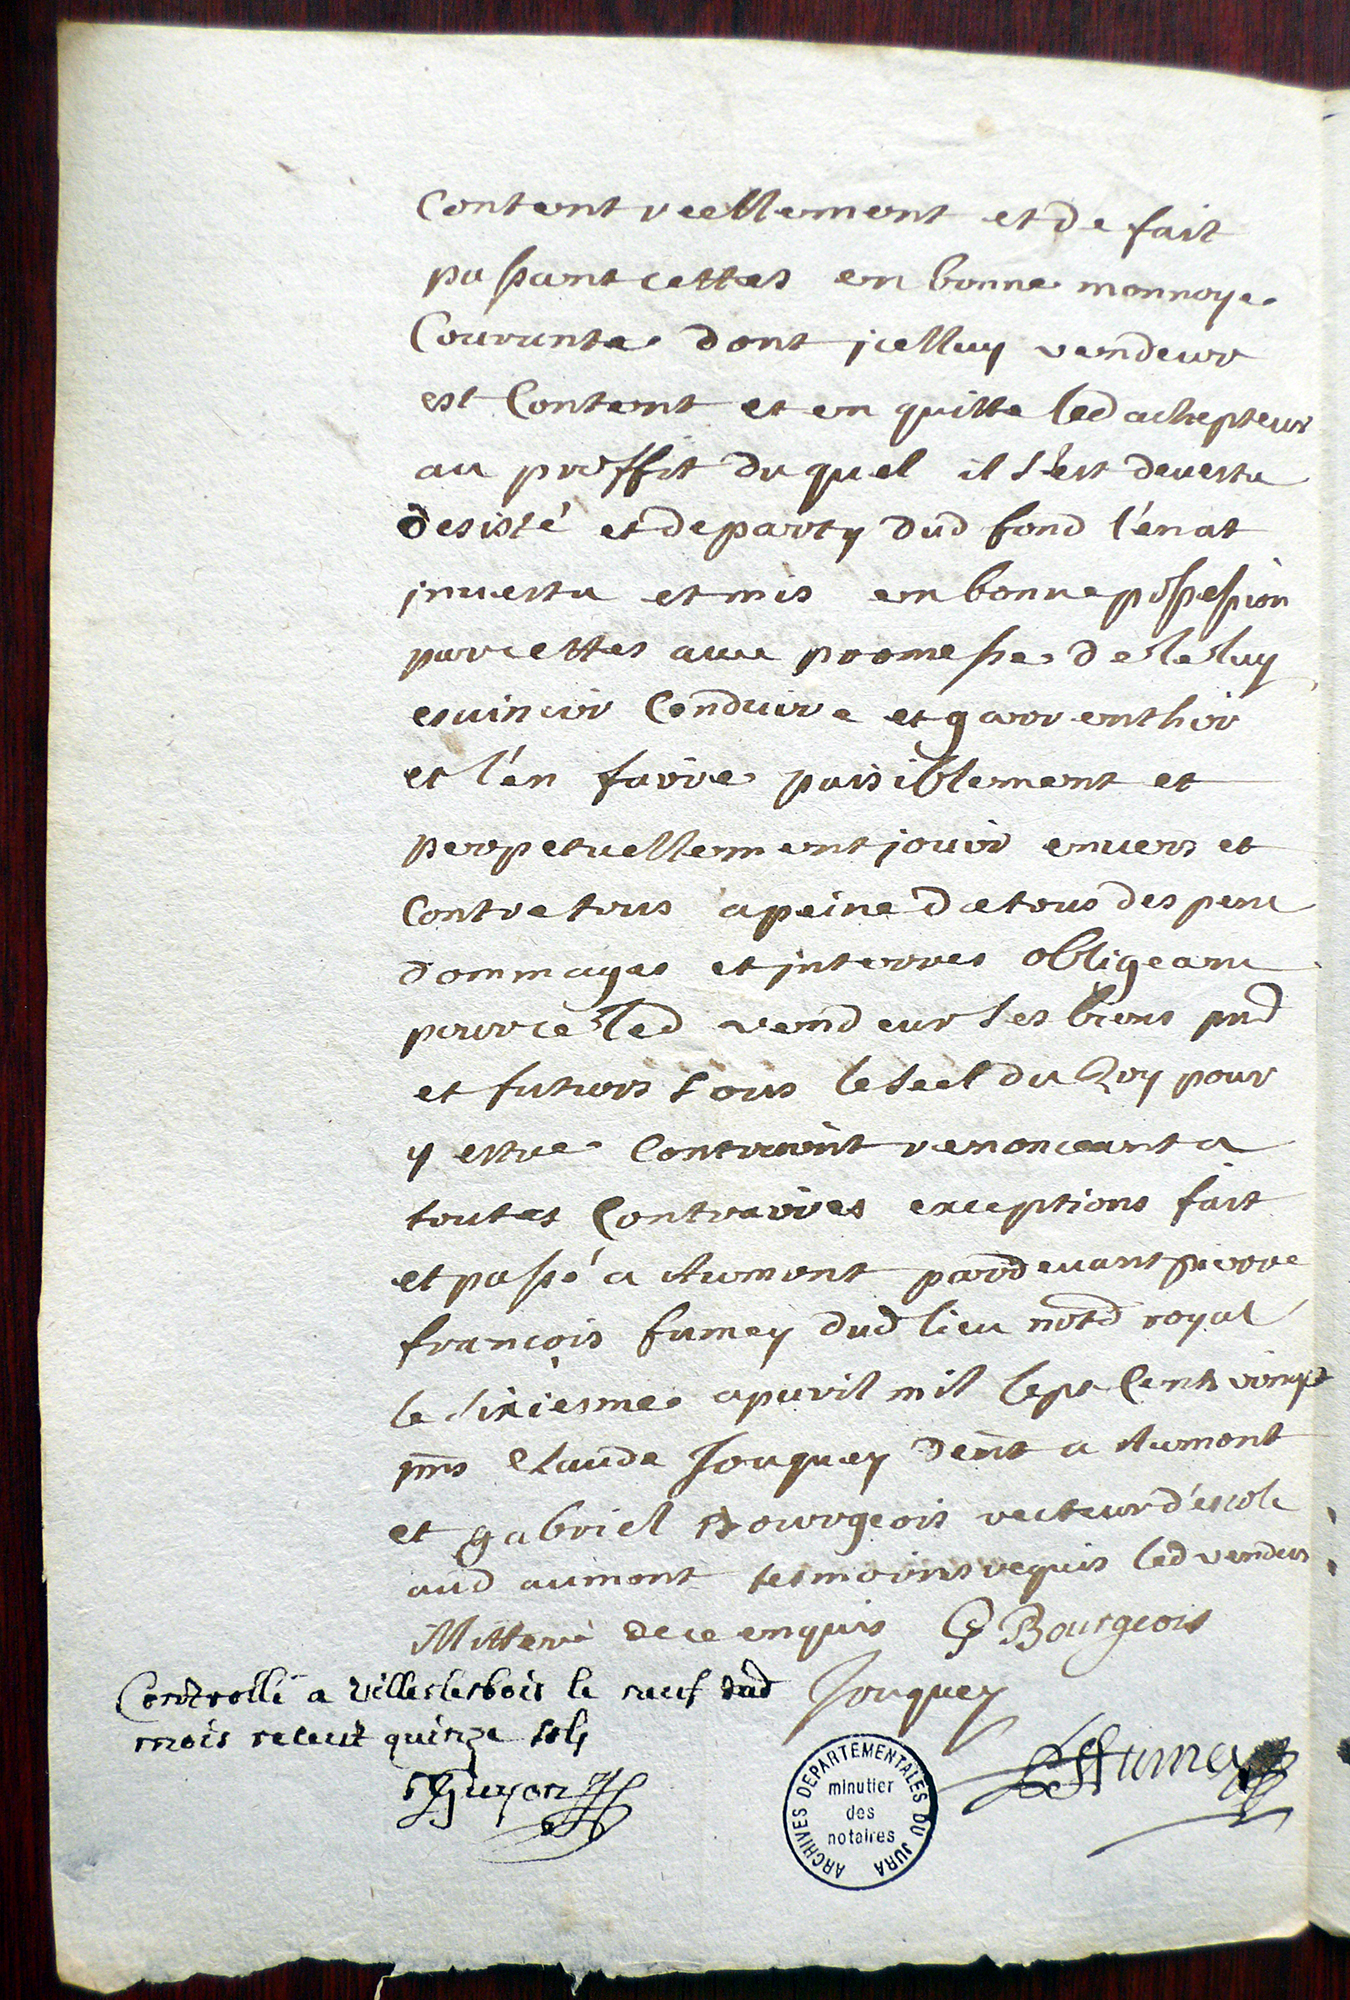 Content reellement et de fait
passant cettes en bonne monnoye
Courante dont jcelluy vendeur
est Content et en quitte led achepteur
au proffit du quel il s'est devestu
desisté et departy dud fond l'en at
jnvestu et mis en bonne possession
par cettes avec promesse de le luy
esvincir Conduire et garrenthir
et l'en faire paisiblement et
perpetuellement jouir envers et
Contre tous a peine de tous despens
dommages et jnterres obligeant
pour ce led vendeur ses biens pnd
et futurs sous le seel du Roy pour
y estre Contraint renonceant a
toutes Contraires exceptions fait
et passé a Aumont pardevant pierre
françois fumey dud lieu nord royal
le sixiesme apvril mil sept Cents vingt
pns Claude Jouquey demt a Aumont
et gabriel Bourgeois recteur d'escole
aud aumont tesmoins requis led vendeur
Jllitteré de ce enquis G Bourgeois
Controllé a Villerslesbois le neuf dud
mois receut quinze sols
Jouquey
Guyon
PFFumey
ARCHIVES DEPARTEMENTALES DU JURA
minutier
des
notaires